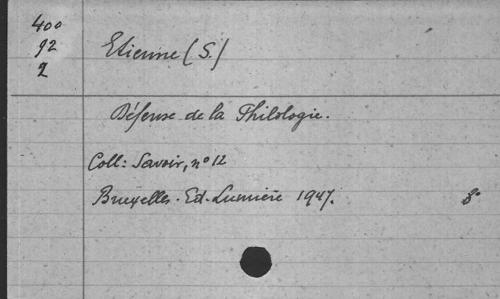 400
92
2
Etienne (S.)
Défense de la Philologie.
Coll: Savoir, n° 12
Bruxelles. Ed. Lumière 1947.
8°